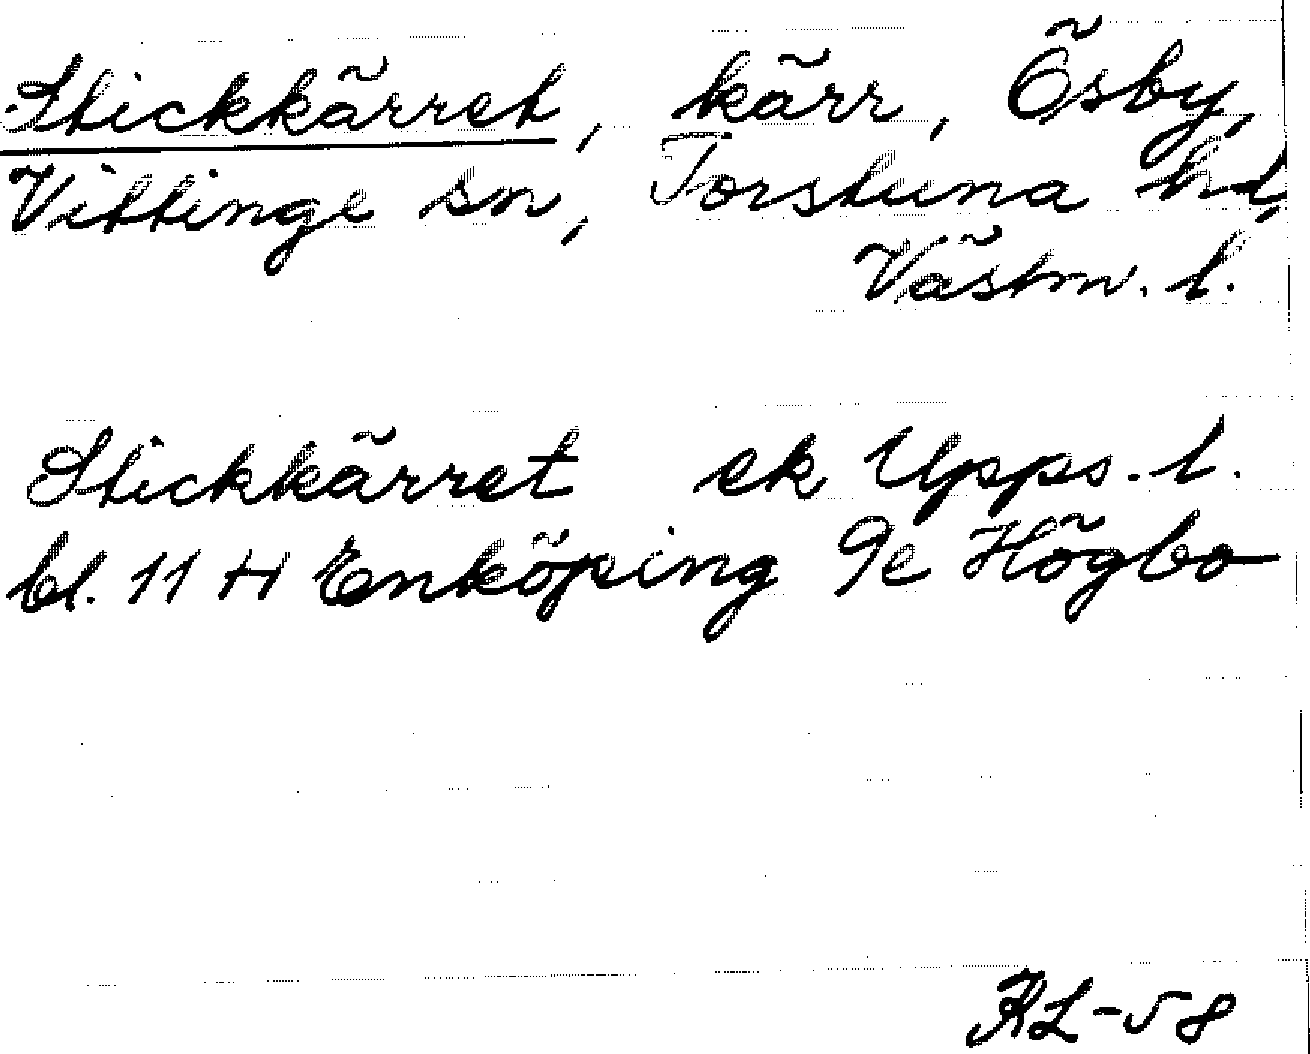 Stickkärret, kärr, Ösby,
Vittinge sn, Torstuna hd,
Västm. l.
Stickkärret ek Upps. l.
bl. 11 H Enköping 9e Högbo
KL-58